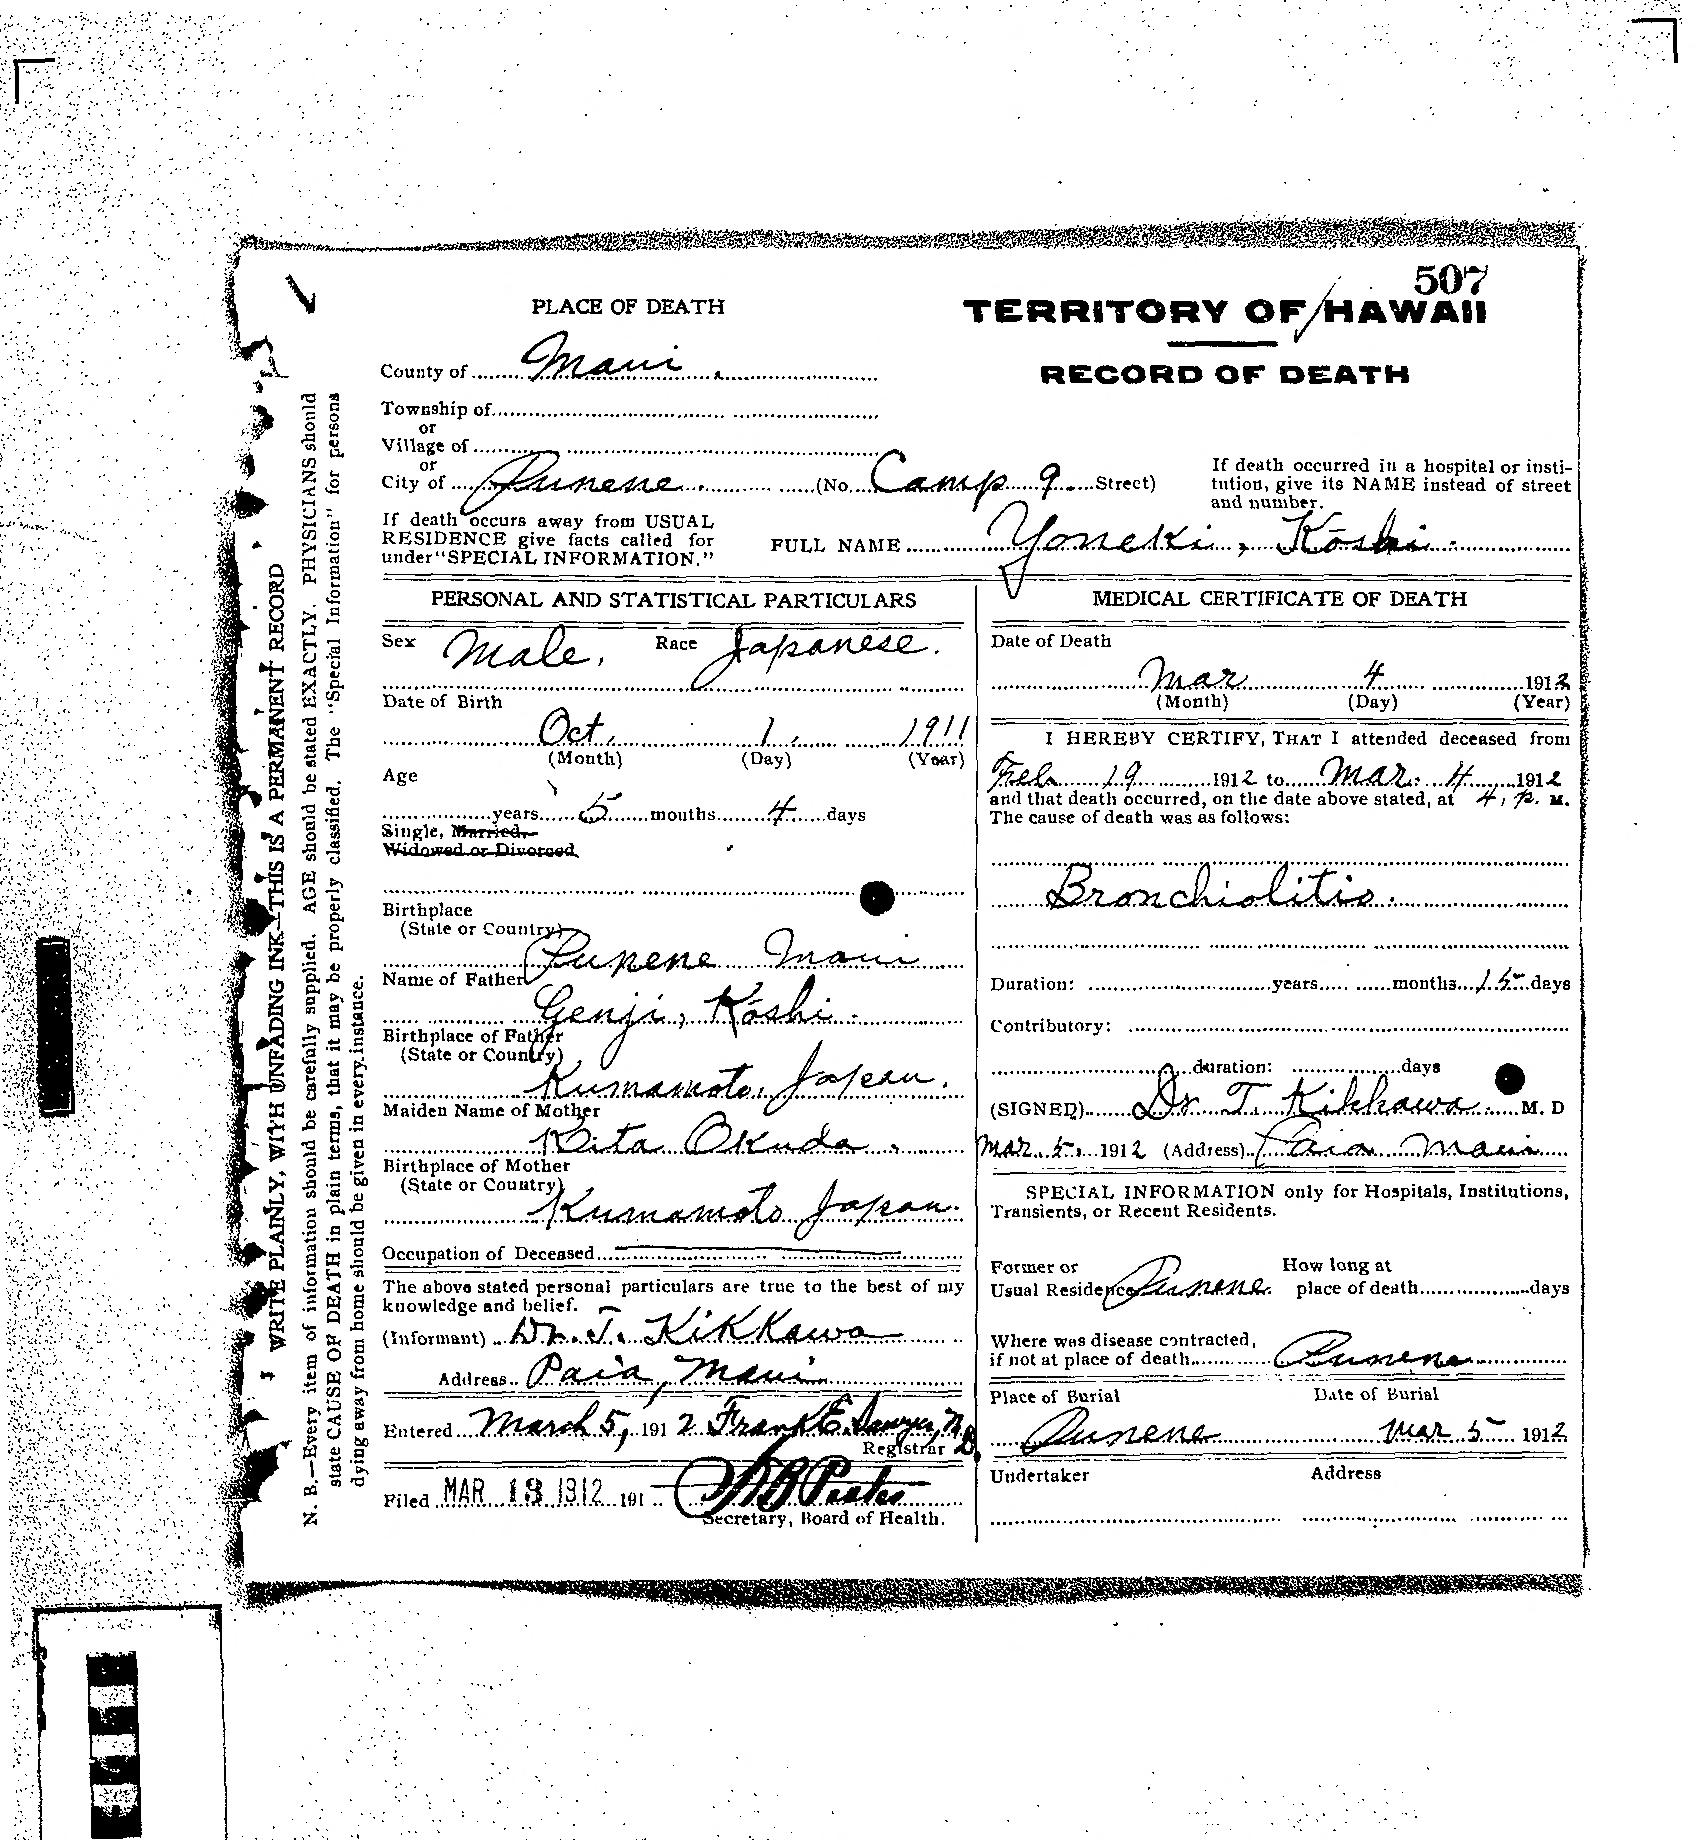 507
PLACE OF DEATH
TERRITORY OF HAWAII
RECORD OF DEATH
County of Maui.
Township of
or
Village of
or
City of Punene. (No. Camp 9 Street)
If death occurred in a hospital or insti-
tution, give its NAME instead of street
and number.
If death occurs away from USUAL
RESIDENCE give facts called for
under "SPECIAL INFORMATION."
FULL NAME Yoneki, Kōshi.
PERSONAL AND STATISTICAL PARTICULARS
Sex Male. Race Japanese.
Date of Birth
Oct. 1. 1911
(Month) (Day) (Year)
Age
years 5 months 4 days
Single, Married,
Widowed or Divorced
Birthplace
(State or Country)
Punene Maui
Name of Father
Genji, Kōshi.
Birthplace of Father
(State or Country)
Kumamoto, Japan.
Maiden Name of Mother
Kita Okuda.
Birthplace of Mother
(State or Country)
Kumamoto Japan.
Occupation of Deceased
The above stated personal particulars are true to the best of my
knowledge and belief.
(Informant) Dr. T. Kikkawa
Address Paia, Maui
Entered March 5, 1912 Frank E. Sawyer, M.D.
Registrar
Filed MAR 13 1912 191
Secretary, Board of Health.
MEDICAL CERTIFICATE OF DEATH
Date of Death
Mar 4 1912
(Month) (Day) (Year)
I HEREBY CERTIFY, THAT I attended deceased from
Feb 19 1912 to Mar. 4 1912
and that death occurred, on the date above stated, at 4, P. M.
The cause of death was as follows:
Bronchiolitis.
Duration: years months 15 days
Contributory:
duration: days
(SIGNED) Dr T. Kikkawa M. D
Mar. 5. 1912 (Address) Paia Maui
SPECIAL INFORMATION only for Hospitals, Institutions,
Transients, or Recent Residents.
Former or
Usual Residence Punene.
How long at
place of death days
Where was disease contracted,
if not at place of death Punene
Place of Burial Date of Burial
Punene Mar 5 1912
Undertaker Address
WRITE PLAINLY, WITH UNFADING INK—THIS IS A PERMANENT RECORD
N. B.—Every item of information should be carefully supplied. AGE should be stated EXACTLY. PHYSICIANS should
state CAUSE OF DEATH in plain terms, that it may be properly classified. The "Special Information" for persons
dying away from home should be given in every instance.